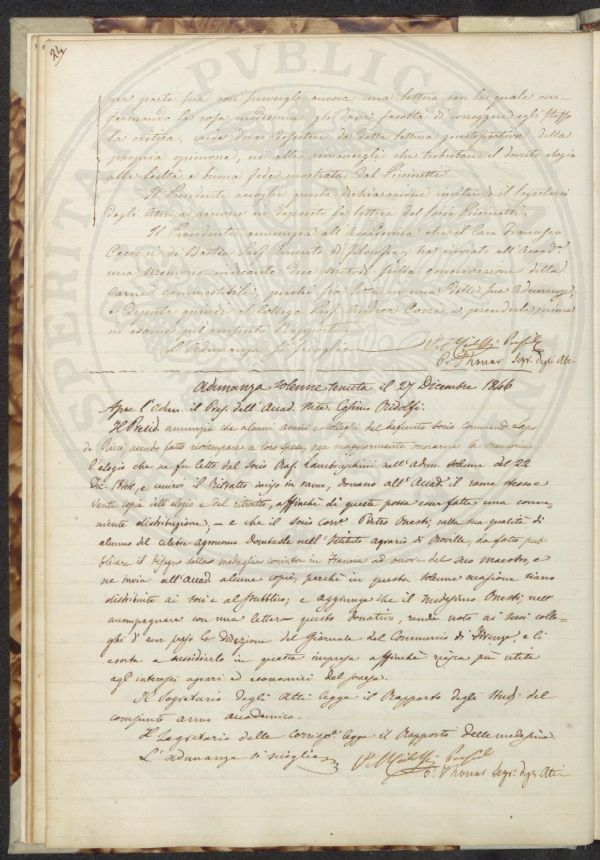 24
per parte sua con priviergli ancora una lettera con la quale con-
fermando la cosa medesima gli dava facoltà di correggere egli stesso
la critica, vuole dover desistere da detta lettura giustificativa della
propria opinione, nè altro rimanergli che tributare il dovuto elogio
alla lealtà e buona fede mostrata dal Picinetti.
Il Presidente accoglie questa dichiarazione invitando il Segretario
degli Atti a ricevere in deposito la lettera del Socio Picinetti.
Il Presidente annunzia all'Accademia che il Cav. Francesco
Cecconi di Bastia Prof. Emerito di filosofia, ha inviato all'Accad.
una Memoria indicante due metodi per la conservazione della
carne commestibile, perchè sia letta in una delle sue adunanze,
e deputa quindi il Collega Prof. Andrea Cozzi a prenderla prima
in esame pel consueto Rapporto.
L'Adunanza si scioglie
C. Ridolfi Presid.
P. Thouar Segr. degli Atti
Adunanza solenne tenuta il 27 Dicembre 1846
Apre l'adun. il Pres. dell'Accad. March. Cosimo Ridolfi.
Il Presid. annunzia che alcuni amici e colleghi del defunto socio commend. Lapo
de' Ricci avendo fatto ristampare a loro spese, per maggiormente onorarne la memoria
l'elogio che ne fu letto dal socio Raf. Lambruschini nell'adun. solenne del 22
Dic. 1844, e unirvi il Ritratto inciso in rame, donano all'Accad. il rame stesso e
venti copie dell'elogio e del ritratto, affinchè di queste possa esser fatta una conve-
niente distribuzione, — e che il socio corr. Pietro Onesti, nella sua qualità di
alunno del celebre agronomo Dombasle nell'Istituto agrario di Roville, ha fatto pub-
blicare il disegno della medaglia coniata in Francia ad onore del suo maestro, e
ne invia all'Accad. alcune copie, perchè in questa solenne occasione siano
distribuite ai soci e al pubblico; e aggiunge che il medesimo Onesti nell'
accompagnare con una lettera questo donativo, rende noto ai suoi colle-
ghi d'aver preso la direzione del Giornale del Commercio di Firenze, e li
esorta a sussidiarlo in questa impresa affinchè riesca più utile
agl'interessi agrari ed economici del paese.
Il Segretario degli Atti legge il Rapporto degli Studi del
compiuto anno accademico.
Il Segretario delle Corrisp. legge il Rapporto delle medesime.
L'adunanza si scioglie
C. Ridolfi Presid.
P. Thouar Segr. degli Atti